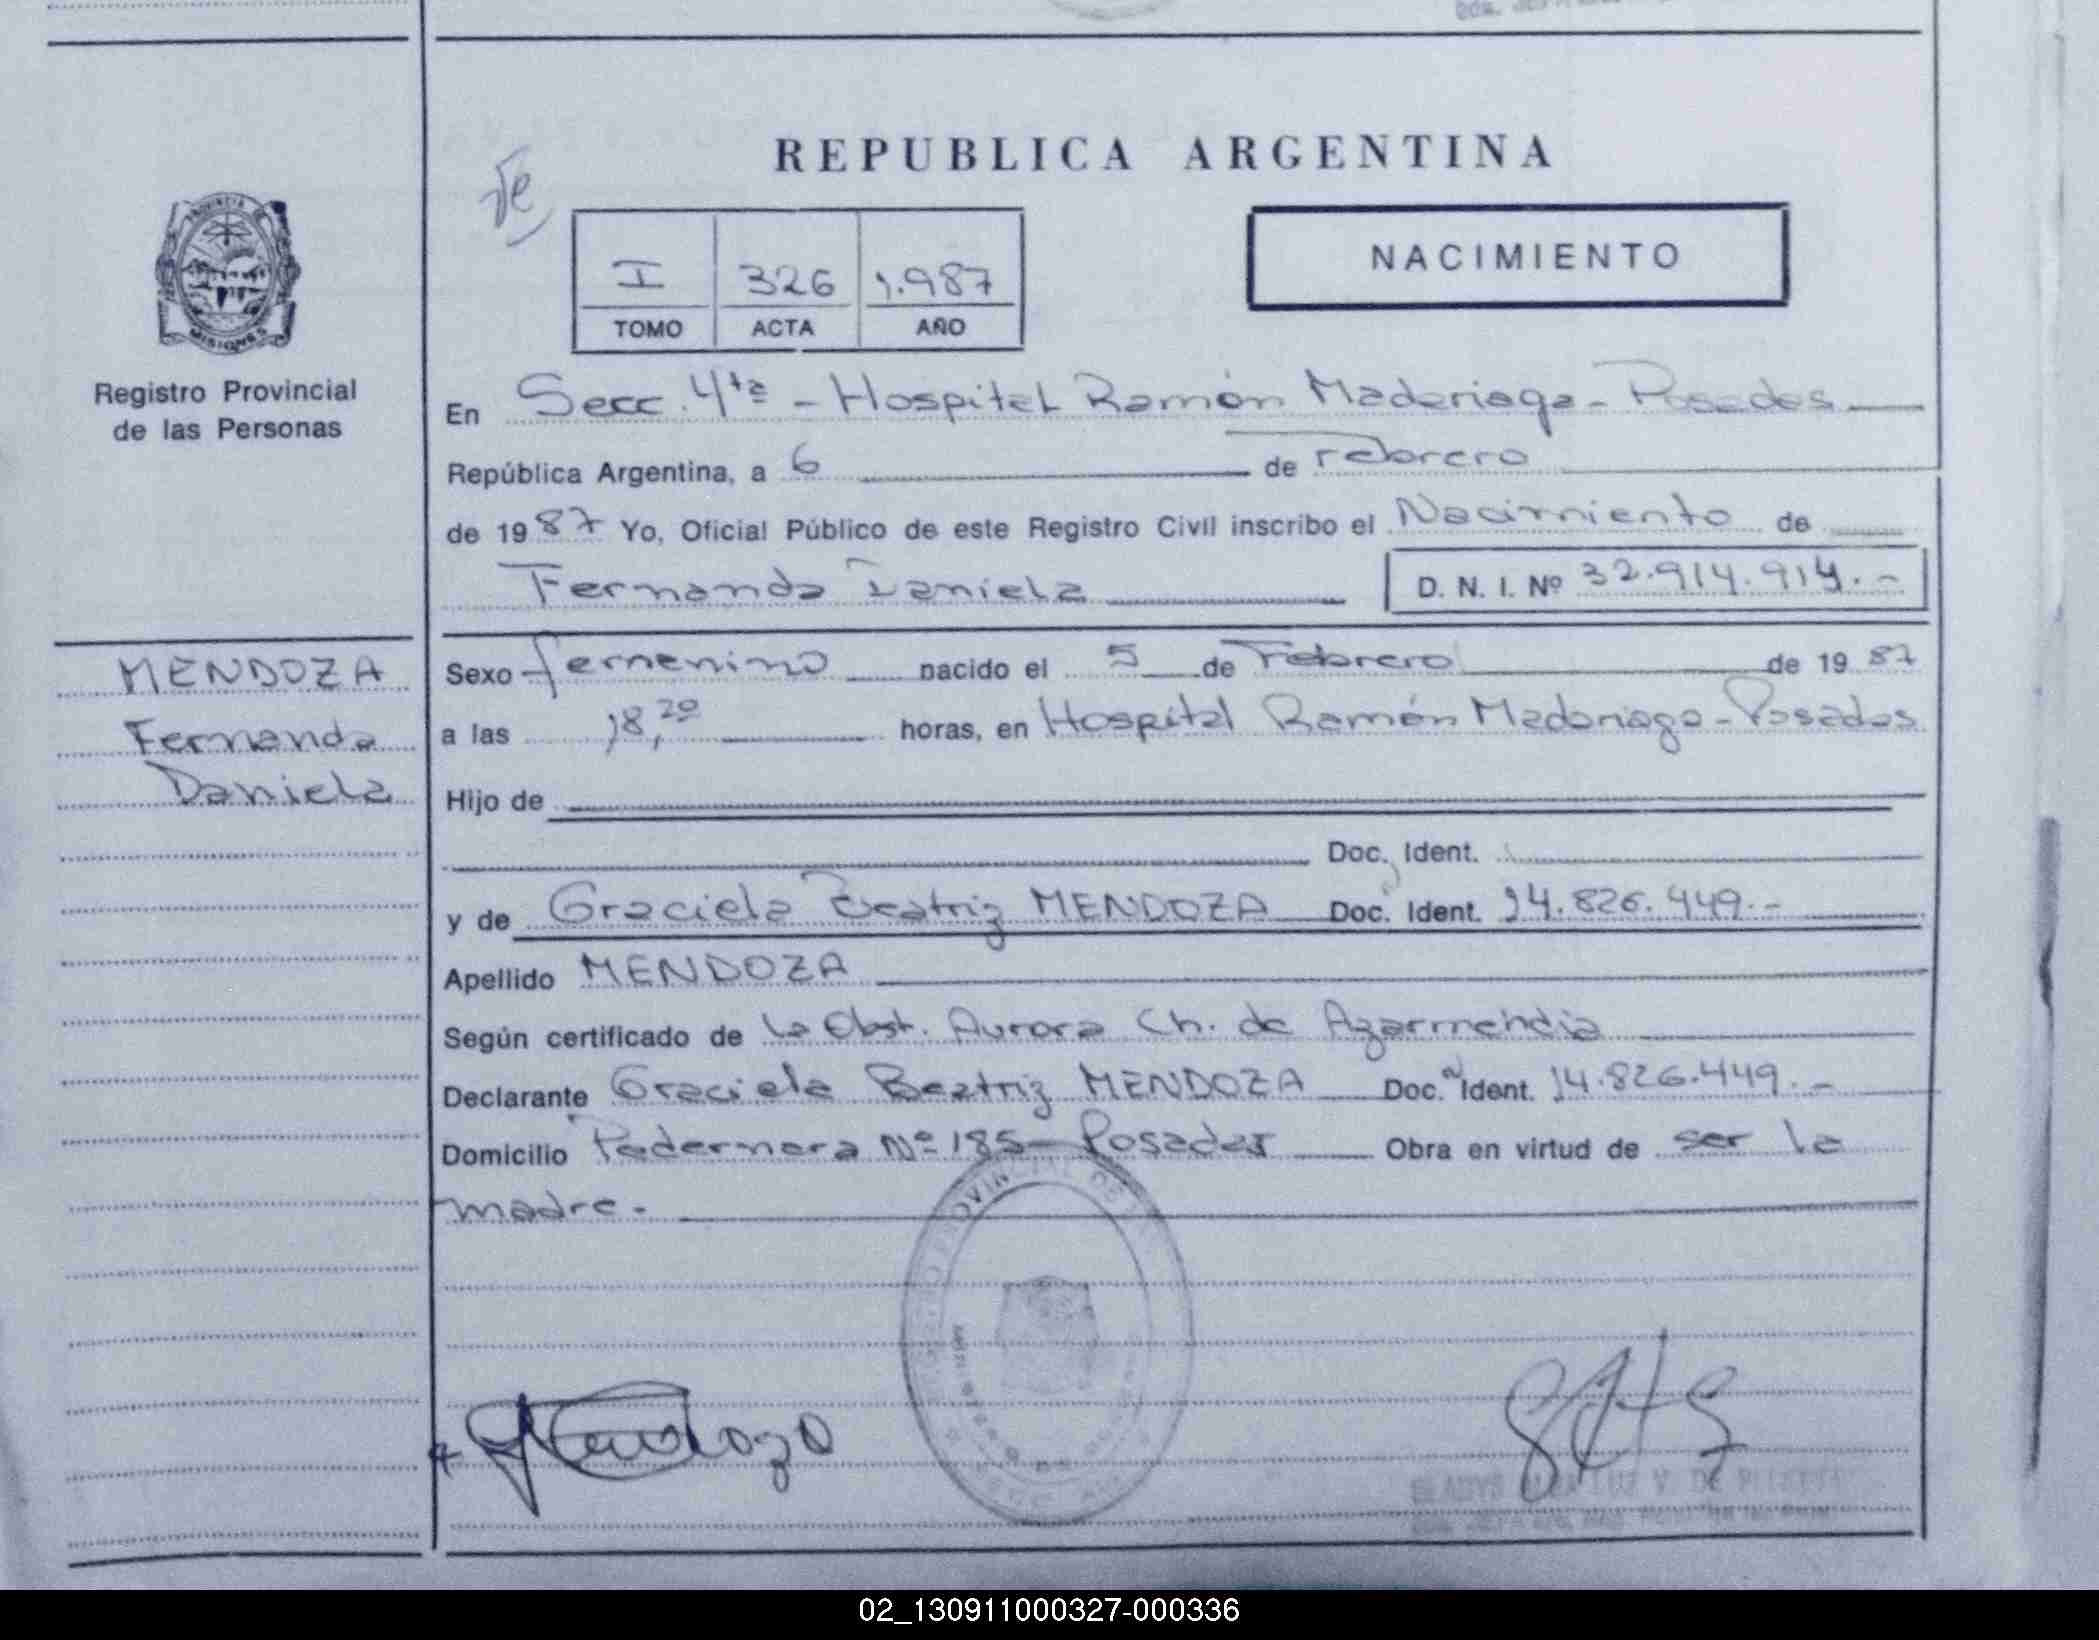 REPUBLICA ARGENTINA
I 326 1.987
TOMO ACTA AÑO
NACIMIENTO
PROVINCIA DE
MISIONES
Registro Provincial
de las Personas
MENDOZA
Fernanda
Daniela
En Secc. 4ta - Hospital Ramón Madariaga - Posadas
República Argentina, a 6 de Febrero
de 1987 Yo, Oficial Público de este Registro Civil inscribo el Nacimiento de
Fernanda Daniela D. N. I. Nº 32.914.914.-
Sexo femenino nacido el 5 de Febrero de 1987
a las 18,20 horas, en Hospital Ramón Madariaga - Posadas
Hijo de
Doc. Ident.
y de Graciela Beatriz MENDOZA Doc. Ident. 14.826.449.-
Apellido MENDOZA
Según certificado de la Obst. Aurora Ch. de Azarmendia
Declarante Graciela Beatriz MENDOZA Doc. Ident. 14.826.449.-
Domicilio Pedernera Nº 185 - Posadas Obra en virtud de ser la
madre.-
02_130911000327-000336